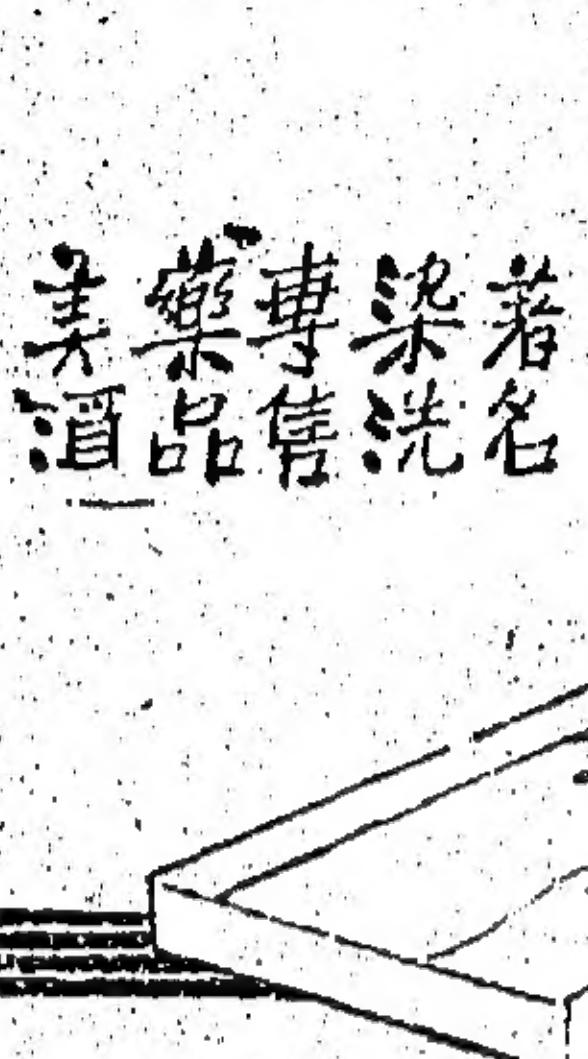 著名
染洗
專售
藥品
美酒